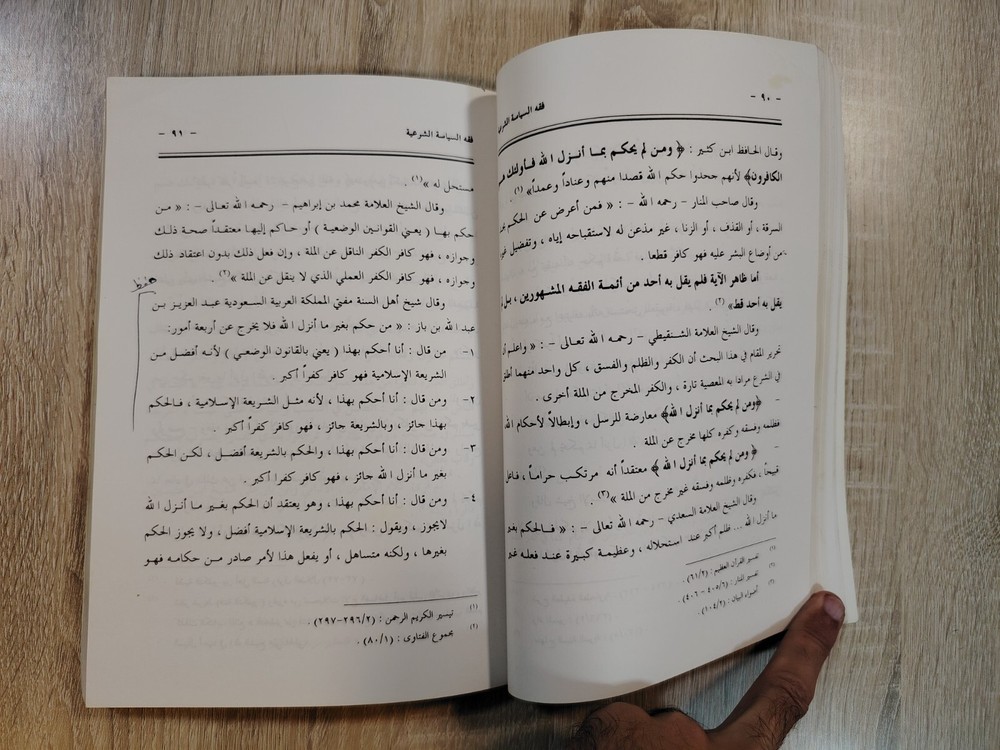 - ٩٠ -
فقه السياسة
وقال الحافظ ابن كثير : ﴿ ومن لم يحكم بما أنزل الله فأولئك
الكافرون﴾ لأنهم جحدوا حكم الله قصدا منهم وعناداً وعمداً» (١) .
وقال صاحب المنار – رحمه الله – : « فمن أعرض عن الحكم
السرقة ، أو القذف ، أو الزنا ، غير مذعن له لاستقباحه إياه ، وتفضيل
من أوضاع البشر عليه فهو كافر قطعا .
أما ظاهر الآية فلم يقل به أحد من أئمة الفقه المشهورين ، بل
يقل به أحد قط» (٢) .
وقال الشيخ العلامة الشنقيطي – رحمه الله تعالى – : « واعلم
تحرير المقام في هذا البحث أن الكفر والظلم والفسق ، كل واحد منهما
في الشرع مرادا به المعصية تارة ، والكفر المخرج من الملة أخرى .
- ﴿ومن لم يحكم بما أنزل الله﴾ معارضة للرسل ، وإبطالاً لأحكام الله
فظلمه وفسقه وكفره كلها مخرج عن الملة .
- ﴿ ومن لم يحكم بما أنزل الله ﴾ معتقداً أنه مرتكب حراماً ،
قبيحاً ، فكفره وظلمه وفسقه غير مخرج من الملة » (٣) .
وقال الشيخ العلامة السعدي – رحمه الله تعالى – : « فالحكم بغير
ما أنزل الله ... ظلم أكبر عند استحلاله ، وعظيمة كبيرة عند فعله غير
(١) تفسير القرآن العظيم : (٦١/٢) .
(٢) تفسير المنار : (٤٠٥/٦ – ٤٠٦) .
(٣) أضواء البيان : (١٠٤/٢) .
فقه السياسة الشرعية
- ٩١ -
مستحل له » (١) .
وقال الشيخ العلامة محمد بن إبراهيم – رحمه الله تعالى – : « من
حكم بها ( يعني القوانين الوضعية ) أو حاكم إليها معتقداً صحة ذلك
وجوازه ، فهو كافر الكفر الناقل عن الملة ، وإن فعل ذلك بدون اعتقاد ذلك
وجوازه ، فهو كافر الكفر العملي الذي لا ينقل عن الملة »(٢) .
وقال شيخ أهل السنة مفتي المملكة العربية السعودية عبد العزيز بن
عبد الله بن باز : « من حكم بغير ما أنزل الله فلا يخرج عن أربعة أمور:
١- من قال : أنا أحكم بهذا ( يعني بالقانون الوضعي ) لأنه أفضل من
الشريعة الإسلامية فهو كافر كفراً أكبر .
٢- ومن قال : أنا أحكم بهذا ، لأنه مثل الشريعة الإسلامية ، فالحكم
بهذا جائز ، وبالشريعة جائز ، فهو كافر كفراً أكبر .
٣- ومن قال : أنا أحكم بهذا ، والحكم بالشريعة أفضل ، لكن الحكم
بغير ما أنزل الله جائز ، فهو كافر كفراً أكبر .
٤- ومن قال : أنا أحكم بهذا ، وهو يعتقد أن الحكم بغير ما أنزل الله
لايجوز ، ويقول : الحكم بالشريعة الإسلامية أفضل ، ولا يجوز الحكم
بغيرها ، ولكنه متساهل ، أو يفعل هذا لأمر صادر من حكامه فهو
(١) تيسير الكريم الرحمن : (٢٩٦/٢-٢٩٧) .
(٢) مجموع الفتاوى : (٨٠/١) .